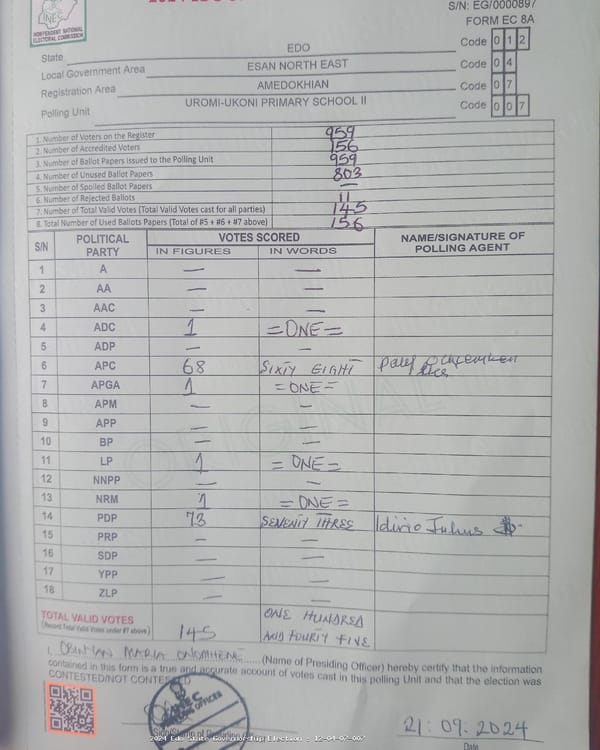 INEC
INDEPENDENT NATIONAL ELECTORAL COMMISSION
S/N: EG/0000897
FORM EC 8A
State EDO Code 0 1 2
Local Government Area ESAN NORTH EAST Code 0 4
Registration Area AMEDOKHIAN Code 0 7
Polling Unit UROMI-UKONI PRIMARY SCHOOL II Code 0 0 7
1. Number of Voters on the Register 959
2. Number of Accredited Voters 156
3. Number of Ballot Papers issued to the Polling Unit 959
4. Number of Unused Ballot Papers 803
5. Number of Spoiled Ballot Papers —
6. Number of Rejected Ballots 11
7. Number of Total Valid Votes (Total Valid Votes cast for all parties) 145
8. Total Number of Used Ballots Papers (Total of #5 + #6 + #7 above) 156
S/N POLITICAL PARTY VOTES SCORED NAME/SIGNATURE OF POLLING AGENT
IN FIGURES IN WORDS
1 A — —
2 AA — —
3 AAC — —
4 ADC 1 =ONE=
5 ADP — —
6 APC 68 SIXTY EIGHT
7 APGA 1 =ONE=
8 APM — —
9 APP — —
10 BP — —
11 LP 1 =ONE=
12 NNPP — —
13 NRM 1 =ONE=
14 PDP 73 SEVENTY THREE
15 PRP — —
16 SDP — —
17 YPP — —
18 ZLP — —
TOTAL VALID VOTES 145 ONE HUNDRED
(Record Total Valid Votes under #7 above) AND FOURTY FIVE
ORIGINAL
I, MARIA (Name of Presiding Officer) hereby certify that the information
contained in this form is a true and accurate account of votes cast in this polling Unit and that the election was
CONTESTED/NOT CONTESTED
21.09.2024
Date
2024 Edo State Governorship Election - 12-04-07-007